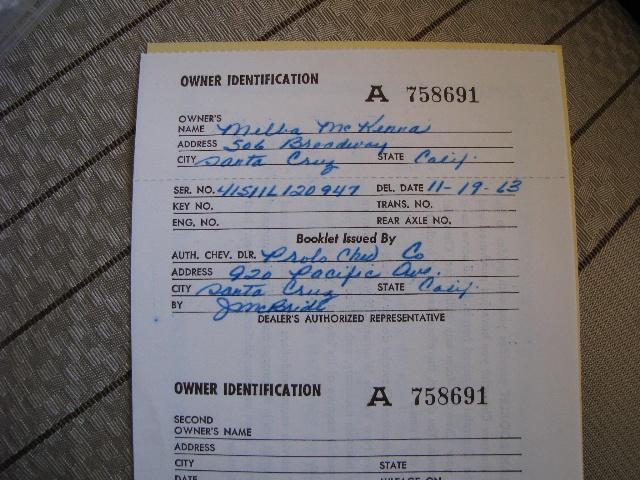 OWNER IDENTIFICATION A 758691
OWNER'S
NAME Melba McKenna
ADDRESS 506 Broadway
CITY Santa Cruz STATE Calif.
SER. NO. 41511L120947 DEL. DATE 11-19-63
KEY NO. TRANS. NO.
ENG. NO. REAR AXLE NO.
Booklet Issued By
AUTH. CHEV. DLR. Prolo Chev Co
ADDRESS 920 Pacific Ave.
CITY Santa Cruz STATE Calif.
BY J McBride
DEALER'S AUTHORIZED REPRESENTATIVE
OWNER IDENTIFICATION A 758691
SECOND
OWNER'S NAME
ADDRESS
CITY STATE
DATE MILEAGE ON